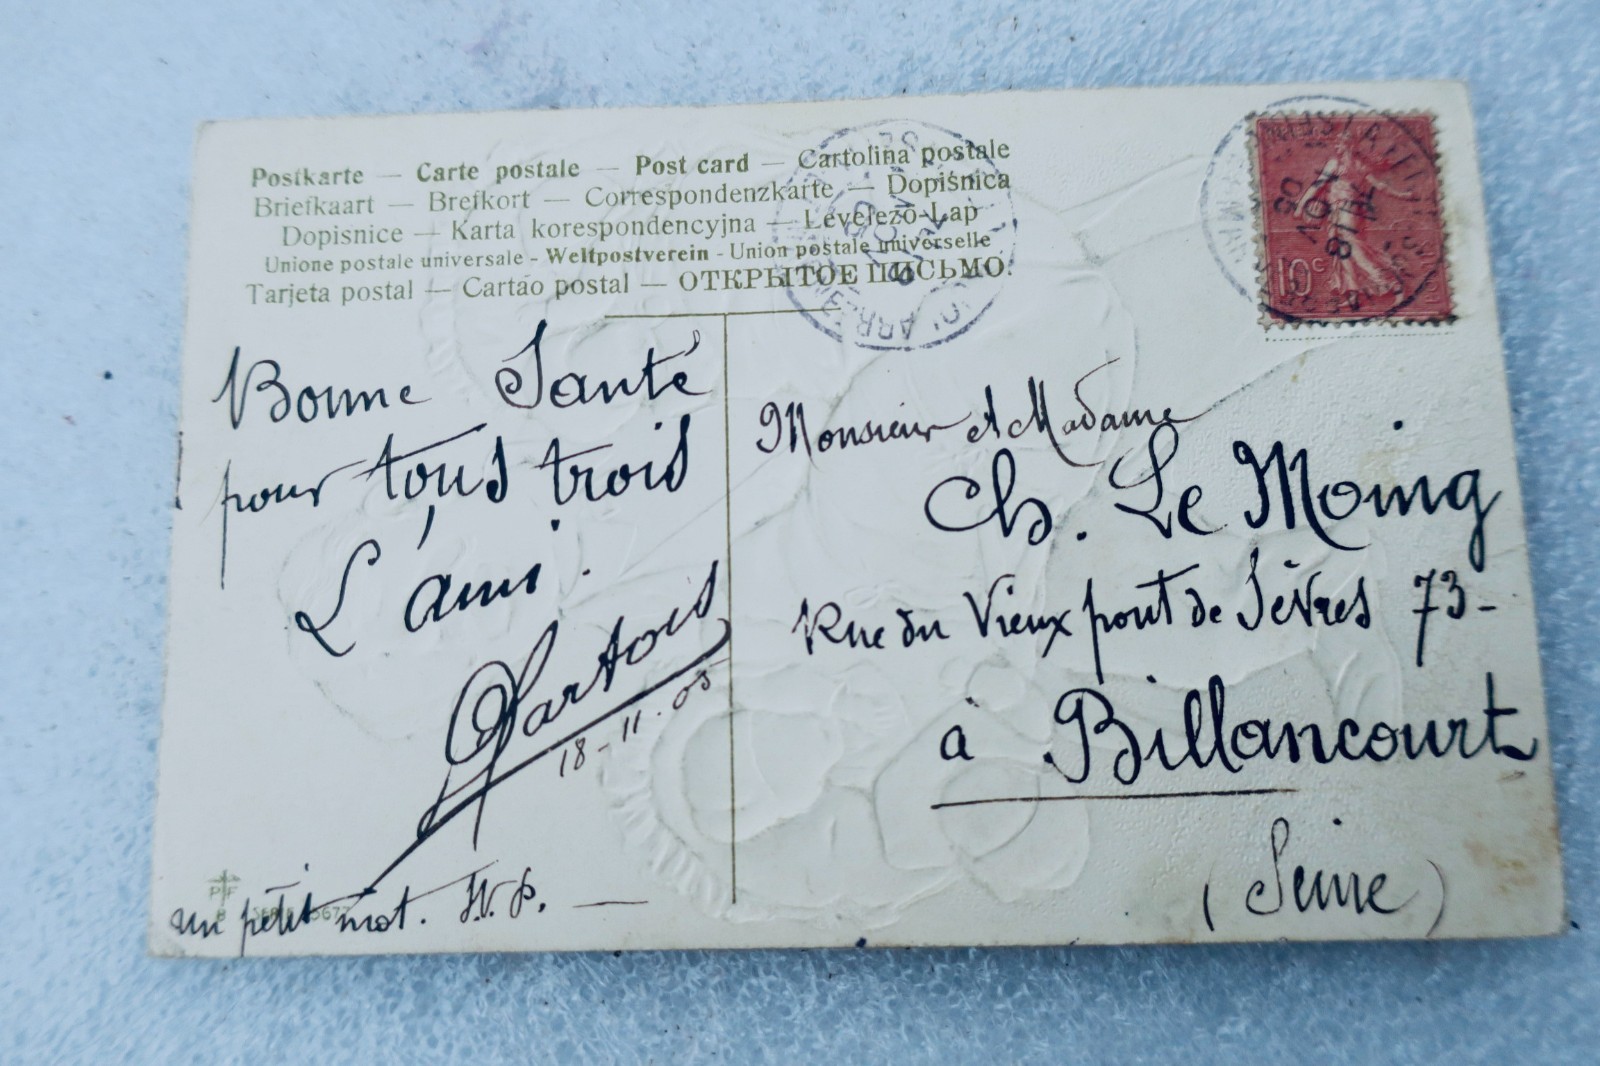 Postkarte — Carte postale — Post card — Cartolina postale
Briefkaart — Brefkort — Correspondenzkarte — Dopiśnica
Dopisnice — Karta korespondencyjna — Levelező-Lap
Unione postale universale - Weltpostverein - Union postale universelle
Tarjeta postal — Cartão postal — ОТКРЫТОЕ ПИСЬМО.
Bonne Santé
pour tous trois
L'ami.
Sartois
18-11.05
un petit mot. S.V.P. —
PF
10c
18 NOV 05
Monsieur et Madame
Ch. Le Moing
Rue du Vieux pont de Sèvres 73-
à Billancourt
(Seine)